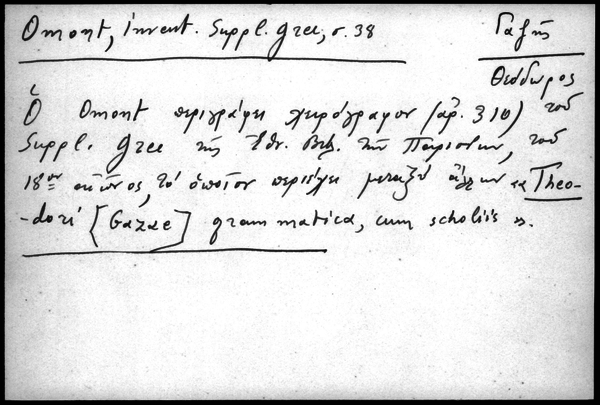 Omont, Invent. Suppl. Grec, σ. 38
Γαζῆς
Θεόδωρος
Ὁ Omont περιγράφει χειρόγραφον (ἀρ. 310) τοῦ
Suppl. Grec τῆς Ἐθν. Βιβ. τῶν Παρισίων, τοῦ
18ου αἰῶνος, τὸ ὁποῖον περιέχει μεταξὺ ἄλλων «Theo-
-dori [Gazae] grammatica, cum scholiis».